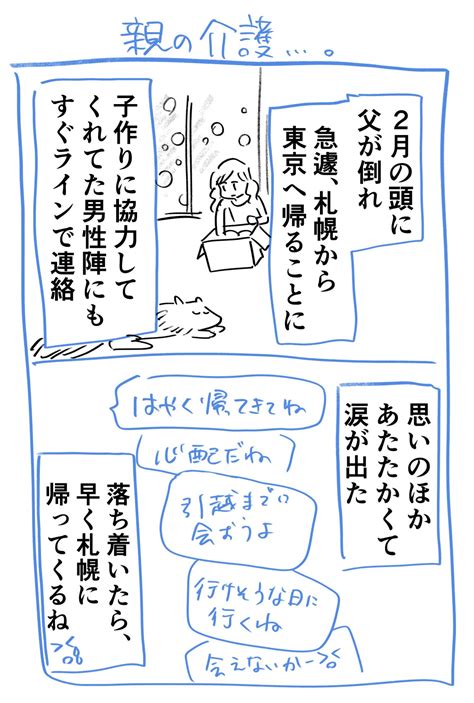 親の介護…。
2月の頭に
父が倒れ
急遽、札幌から
東京へ帰ることに
子作りに協力して
くれてた男性陣にも
すぐラインで連絡
思いのほか
あたたかくて
涙が出た
はやく帰ってきてね
心配だね
引越までに
会おうよ
行けそうな日に
行くね
会えないかー
落ち着いたら、
早く札幌に
帰ってくるね